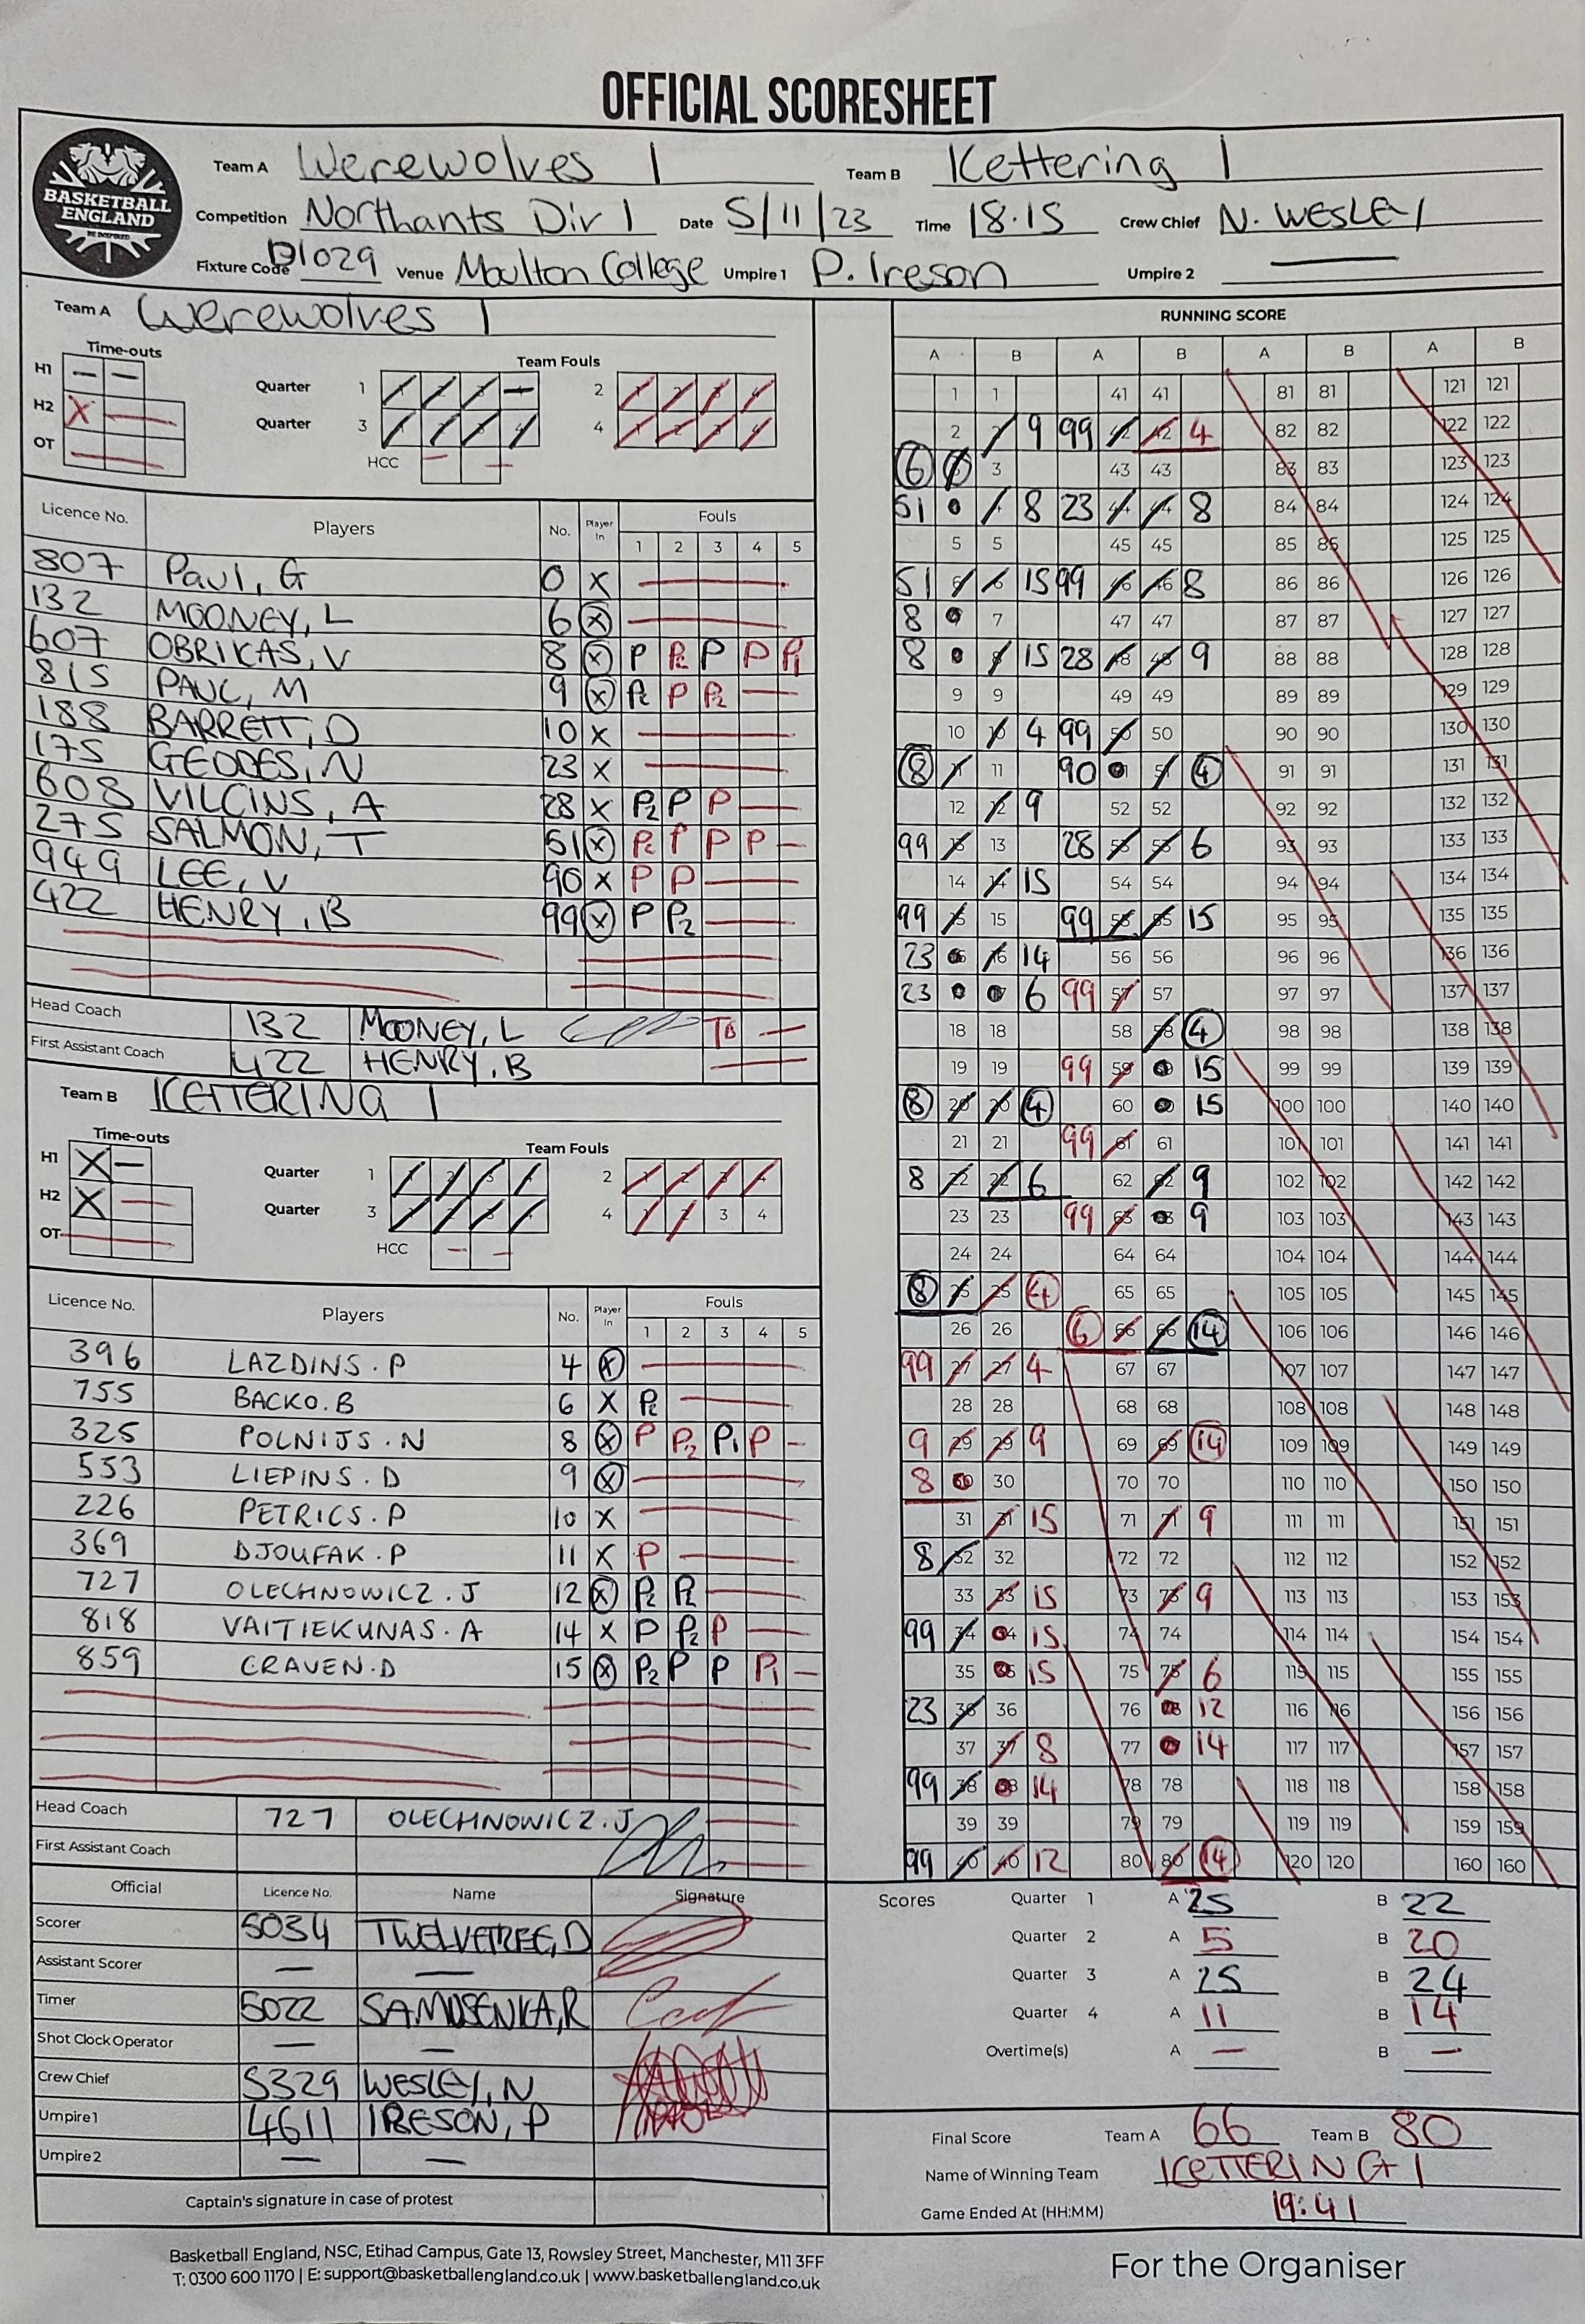 OFFICIAL SCORESHEET
BASKETBALL ENGLAND
Team A Werewolves 1 Team B Kettering 1
Competition Northants Div 1 Date 5/11/23 Time 18.15 Crew Chief N. WESLEY
Fixture Code D1029 Venue Moulton College Umpire 1 P. Ireson Umpire 2 —
Team A Werewolves 1
Time-outs
Team Fouls
H1 — —
H2 X —
OT —
Quarter 1 2
Quarter 3 4
HCC — —
Licence No. Players No. Player In Fouls
1 2 3 4 5
807 Paul, G 0 X
132 MOONEY, L 6 X
607 OBRIKAS, V 8 X P P2 P P P1
815 PAUL, M 9 X P2 P P2 —
188 BARRETT, D 10 X
175 GEDDES, N 23 X
608 VILCINS, A 28 X P2 P P —
275 SALMON, T 51 X P2 P P P —
949 LEE, V 90 X P P —
422 HENRY, B 99 X P P2 —
Head Coach 132 MOONEY, L TB —
First Assistant Coach 422 HENRY, B
Team B KETTERING 1
Time-outs
Team Fouls
H1 X —
H2 X —
OT —
Quarter 1 2
Quarter 3 4 3 4
HCC — —
Licence No. Players No. Player In Fouls
1 2 3 4 5
396 LAZDINS. P 4 X
755 BACKO. B 6 X P2 —
325 POLNIJS. N 8 X P P2 P1 P —
553 LIEPINS. D 9 X
226 PETRICS. P 10 X
369 DJOUFAK. P 11 X P —
727 OLECHNOWICZ. J 12 X P2 P2 —
818 VAITIEKUNAS. A 14 X P P2 P —
859 CRAVEN. D 15 X P2 P P P1 —
Head Coach 727 OLECHNOWICZ. J
First Assistant Coach
Official Licence No. Name Signature
Scorer 5034 TWELVETREE, D
Assistant Scorer — —
Timer 5022 SAMUSENKA, R
Shot Clock Operator — —
Crew Chief 5329 WESLEY, N
Umpire 1 4611 IRESON, P
Umpire 2 — —
Captain's signature in case of protest
RUNNING SCORE
A B A B A B A B
1 1 41 41 81 81 121 121
2 2 9 99 42 42 4 82 82 122 122
6 3 3 43 43 83 83 123 123
51 4 4 8 23 44 44 8 84 84 124 124
5 5 45 45 85 85 125 125
51 6 6 15 99 46 46 8 86 86 126 126
8 7 7 47 47 87 87 127 127
8 8 8 15 28 48 48 9 88 88 128 128
9 9 49 49 89 89 129 129
10 10 4 99 50 50 90 90 130 130
8 11 11 90 51 51 4 91 91 131 131
12 12 9 52 52 92 92 132 132
99 13 13 28 53 53 6 93 93 133 133
14 14 15 54 54 94 94 134 134
99 15 15 99 55 55 15 95 95 135 135
23 16 16 14 56 56 96 96 136 136
23 17 17 6 99 57 57 97 97 137 137
18 18 58 58 4 98 98 138 138
19 19 99 59 59 15 99 99 139 139
8 20 20 4 60 60 15 100 100 140 140
21 21 99 61 61 101 101 141 141
8 22 22 6 62 62 9 102 102 142 142
23 23 99 63 63 9 103 103 143 143
24 24 64 64 104 104 144 144
8 25 25 4 65 65 105 105 145 145
26 26 6 66 66 14 106 106 146 146
99 27 27 4 67 67 107 107 147 147
28 28 68 68 108 108 148 148
9 29 29 9 69 69 14 109 109 149 149
8 30 30 70 70 110 110 150 150
31 31 15 71 71 9 111 111 151 151
8 32 32 72 72 112 112 152 152
33 33 15 73 73 9 113 113 153 153
99 34 34 15 74 74 114 114 154 154
35 35 15 75 75 6 115 115 155 155
23 36 36 76 76 12 116 116 156 156
37 37 8 77 77 14 117 117 157 157
99 38 38 14 78 78 118 118 158 158
39 39 79 79 119 119 159 159
99 40 40 12 80 80 14 120 120 160 160
Scores Quarter 1 A 25 B 22
Quarter 2 A 5 B 20
Quarter 3 A 25 B 24
Quarter 4 A 11 B 14
Overtime(s) A — B —
Final Score Team A 66 Team B 80
Name of Winning Team KETTERING 1
Game Ended At (HH:MM) 19:41
Basketball England, NSC, Etihad Campus, Gate 13, Rowsley Street, Manchester, M11 3FF
T: 0300 600 1170 | E: support@basketballengland.co.uk | www.basketballengland.co.uk
For the Organiser